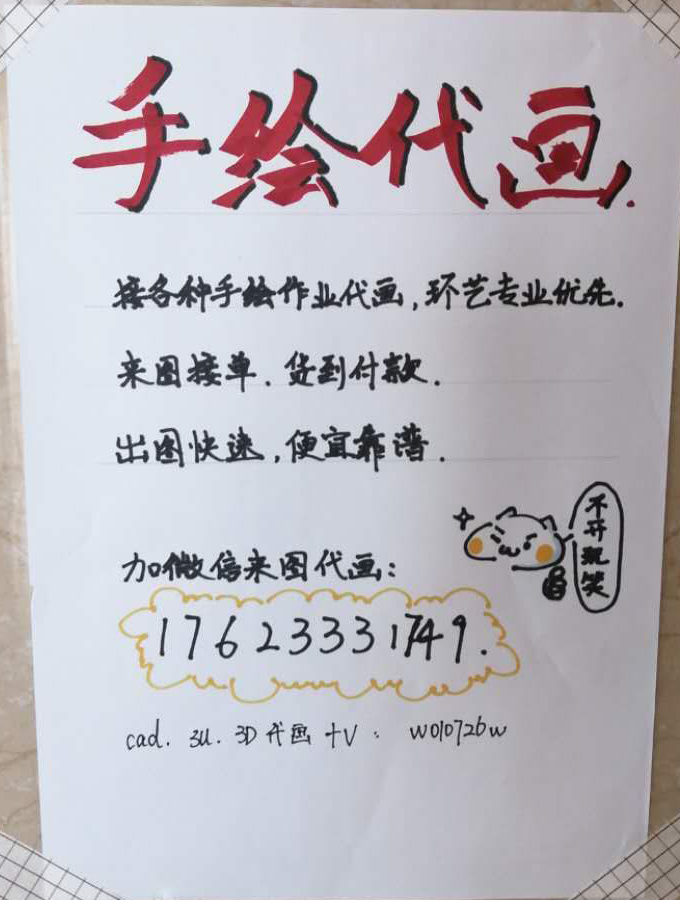 手绘代画.
接各种手绘作业代画,环艺专业优先.
来图接单.货到付款.
出图快速,便宜靠谱.
不开玩笑
加微信来图代画:
17623331749.
cad. su. 3D代画 +V: w010726w